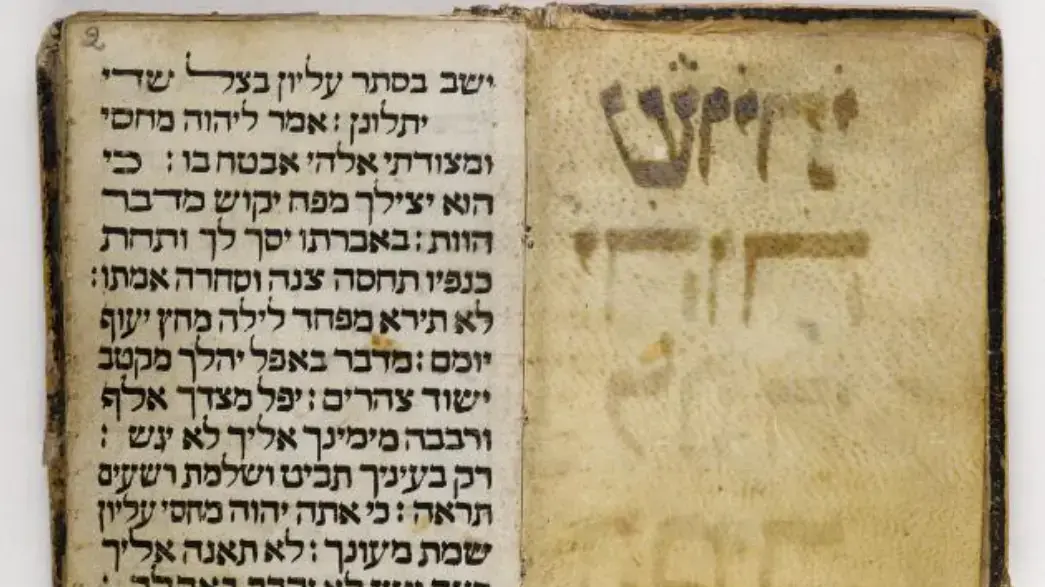 2
ישב בסתר עליון בצל שדי
יתלונן : אמר ליהוה מחסי
ומצודתי אלהי אבטח בו : כי
הוא יצילך מפח יקוש מדבר
הוות : באברתו יסך לך ותחת
כנפיו תחסה צנה וסחרה אמתו :
לא תירא מפחד לילה מחץ יעוף
יומם : מדבר באפל יהלך מקטב
ישוד צהרים : יפל מצדך אלף
ורבבה מימינך אליך לא יגש :
רק בעיניך תביט ושלמת רשעים
תראה : כי אתה יהוה מחסי עליון
שמת מעונך : לא תאנה אליך